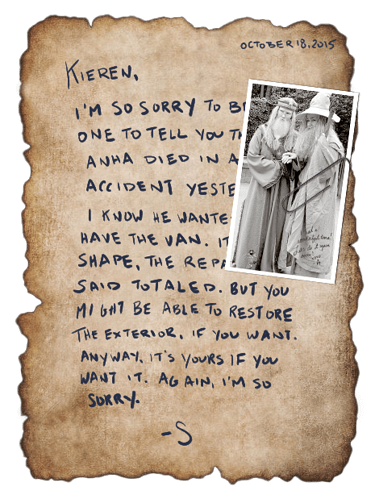 OCTOBER 18, 2015
KIEREN,
I'M SO SORRY TO B
ONE TO TELL YOU T
ANHA DIED IN A
ACCIDENT YESTE
I KNOW HE WANTE
HAVE THE VAN. IT
SHAPE, THE REPA
SAID TOTALED. BUT YOU
MIGHT BE ABLE TO RESTORE
THE EXTERIOR, IF YOU WANT.
ANYWAY, IT'S YOURS IF YOU
WANT IT. AGAIN, I'M SO
SORRY.
-S